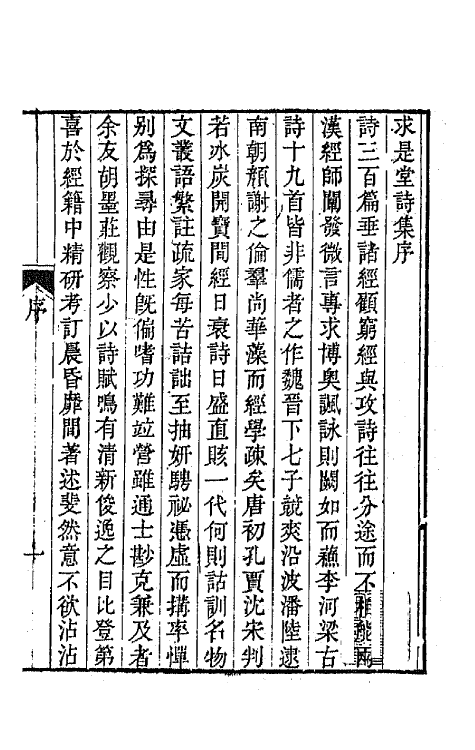 求是堂詩集序
詩三百篇垂諸經顧窮經與攻詩往往分途而不
漢經師闡發微言專求博奧諷詠則闕如而蘇李河梁古
詩十九首皆非儒者之作魏晉下七子競爽沿波潘陸逮
南朝顏謝之倫羣尚華藻而經學疎矣唐初孔賈沈宋判
若氷炭開寶間經日衰詩日盛直賅一代何則詁訓名物
文叢語繁註疏家每苦詰詘至抽妍騁祕憑虛而搆率憚
別為探尋由是性旣偏嗜功難竝營雖通士尠克兼及者
余友胡墨莊觀察少以詩賦鳴有清新俊逸之目比登第
喜於經籍中精研考訂晨昏靡間著述斐然意不欲沾沾
序
一